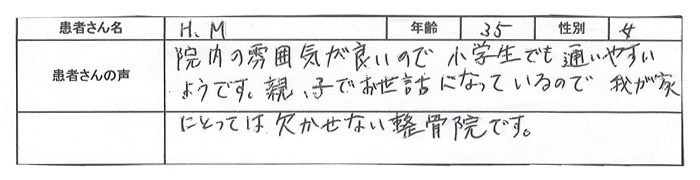 患者さん名 H.M 年齢 35 性別 女
患者さんの声
院内の雰囲気が良いので 小学生でも通いやすい
ようです。親、子でお世話になっているので 我が家
にとっては欠かせない整骨院です。